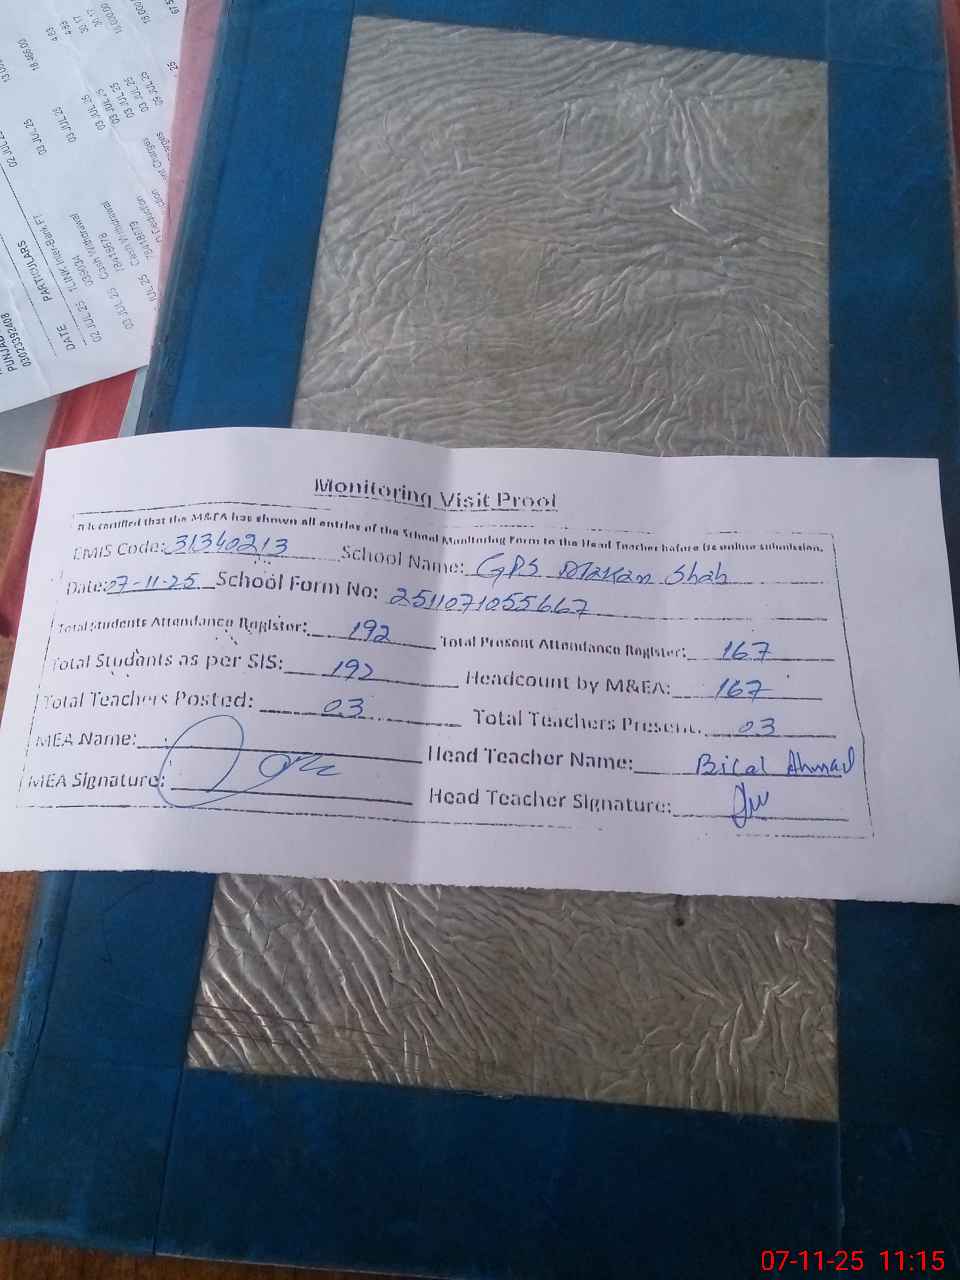 Monitoring Visit Proof
It is certified that the M&EA has shown all entries of the School Monitoring Form to the Head Teacher before its online submission.
EMIS Code: 31340213 School Name: GPS Makan Shah
Date: 07-11-25 School Form No: 2511071055667
Total Students Attendance Register: 192 Total Present Attendance Register: 167
Total Students as per SIS: 192 Headcount by M&EA: 167
Total Teachers Posted: 03 Total Teachers Present: 03
MEA Name: Head Teacher Name: Bilal Ahmad
MEA Signature: Head Teacher Signature:
PUNJAB
03023392408
DATE PARTICULARS
02 JUL 25 1LINK Inter-Bank FT 02 JUL 25
03 JUL 25 Cash Withdrawal 03 JUL 25
Cash Withdrawal 03 JUL 25
03 JUL 25
03 JUL 25
09 JUL 25
18,466.00
4.63
4.63
30.17
30.17
07-11-25 11:15